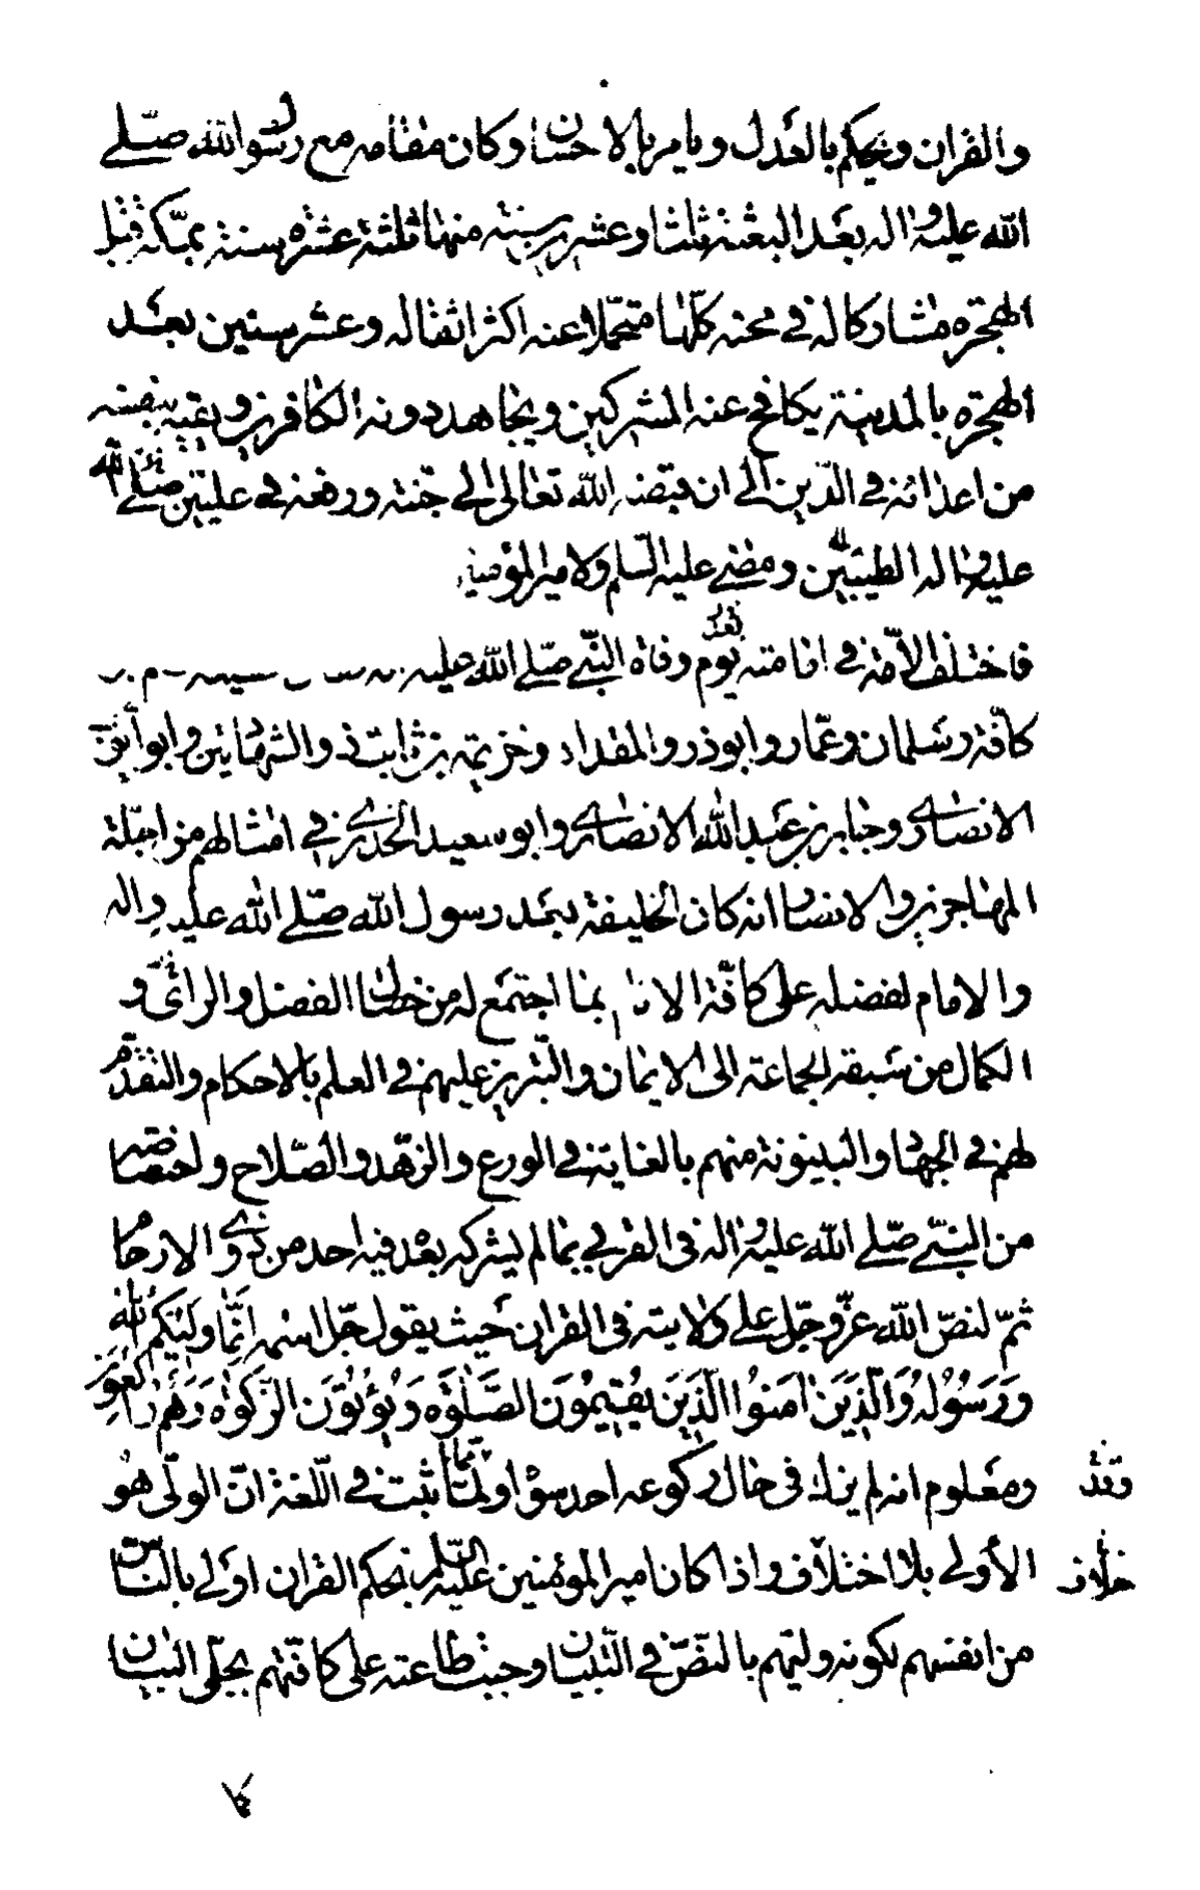 والقران ويحكم بالعدل ويامر بالاحسان وكان مقامه مع رسول الله صلى
الله عليه واله بعد البعثة ثلثا وعشرين سنة منها ثلثة عشره سنة بمكة قبل
الهجرة مشاركا له في محنه كلها متحملا عنه اكثر اثقاله وعشر سنين بعد
الهجرة بالمدينة يكافح عنه المشركين ويجاهد دونه الكافرين ويقيه بنفسه
من اعدائه في الدين الى ان قبضه الله تعالى الى جنته ورفعه في عليين صلى الله
عليه واله الطيبين ومضى عليه السلم ولامير المؤمنين
فاختلف الامة في امامته يوم وفاة النبي صلى الله عليه
كافة وسلمان وعمار وابوذر والمقداد وخزيمة بن ثابت ذو الشهادتين وابو ايوب
الانصاري وجابر بن عبد الله الانصاري وابو سعيد الخدري في امثالهم من اجلة
المهاجرين والانصار انه كان الخليفة بعد رسول الله صلى الله عليه واله
والامام لفضله على كافة الانام بما اجتمع له من خصال الفضل والرأي و
الكمال من سبقه الجماعة الى الايمان والتبريز عليهم في العلم بالاحكام والتقدم
لهم في الجهاد والبينونة منهم بالغاية في الورع والزهد والصلاح واختصاصه
من النبي صلى الله عليه واله في القربى بما لم يشركه بعد فيه احد من ذوي الارحام
ثم لنص الله عز وجل على ولايته في القران حيث يقول جل اسمه اِنَّمَا وَلِيُّكُمُ اللهُ
وَرَسُولُهُ وَالَّذِينَ اٰمَنُوا الَّذِينَ يُقِيمُونَ الصَّلٰوةَ وَيُؤْتُونَ الزَّكٰوةَ وَهُمْ رٰاكِعُونَ
ومعلوم انه لم يزك في حال ركوعه احد سواه ولما ثبت في اللغة ان الولي هو
وقد
الأولى بلا اختلاف واذا كان امير المؤمنين عليه السلم بحكم القران اولى بالناس
خلاف
من انفسهم لكونه وليهم بالنص في التبيان وجبت طاعته على كافتهم بجلي البيان
كا